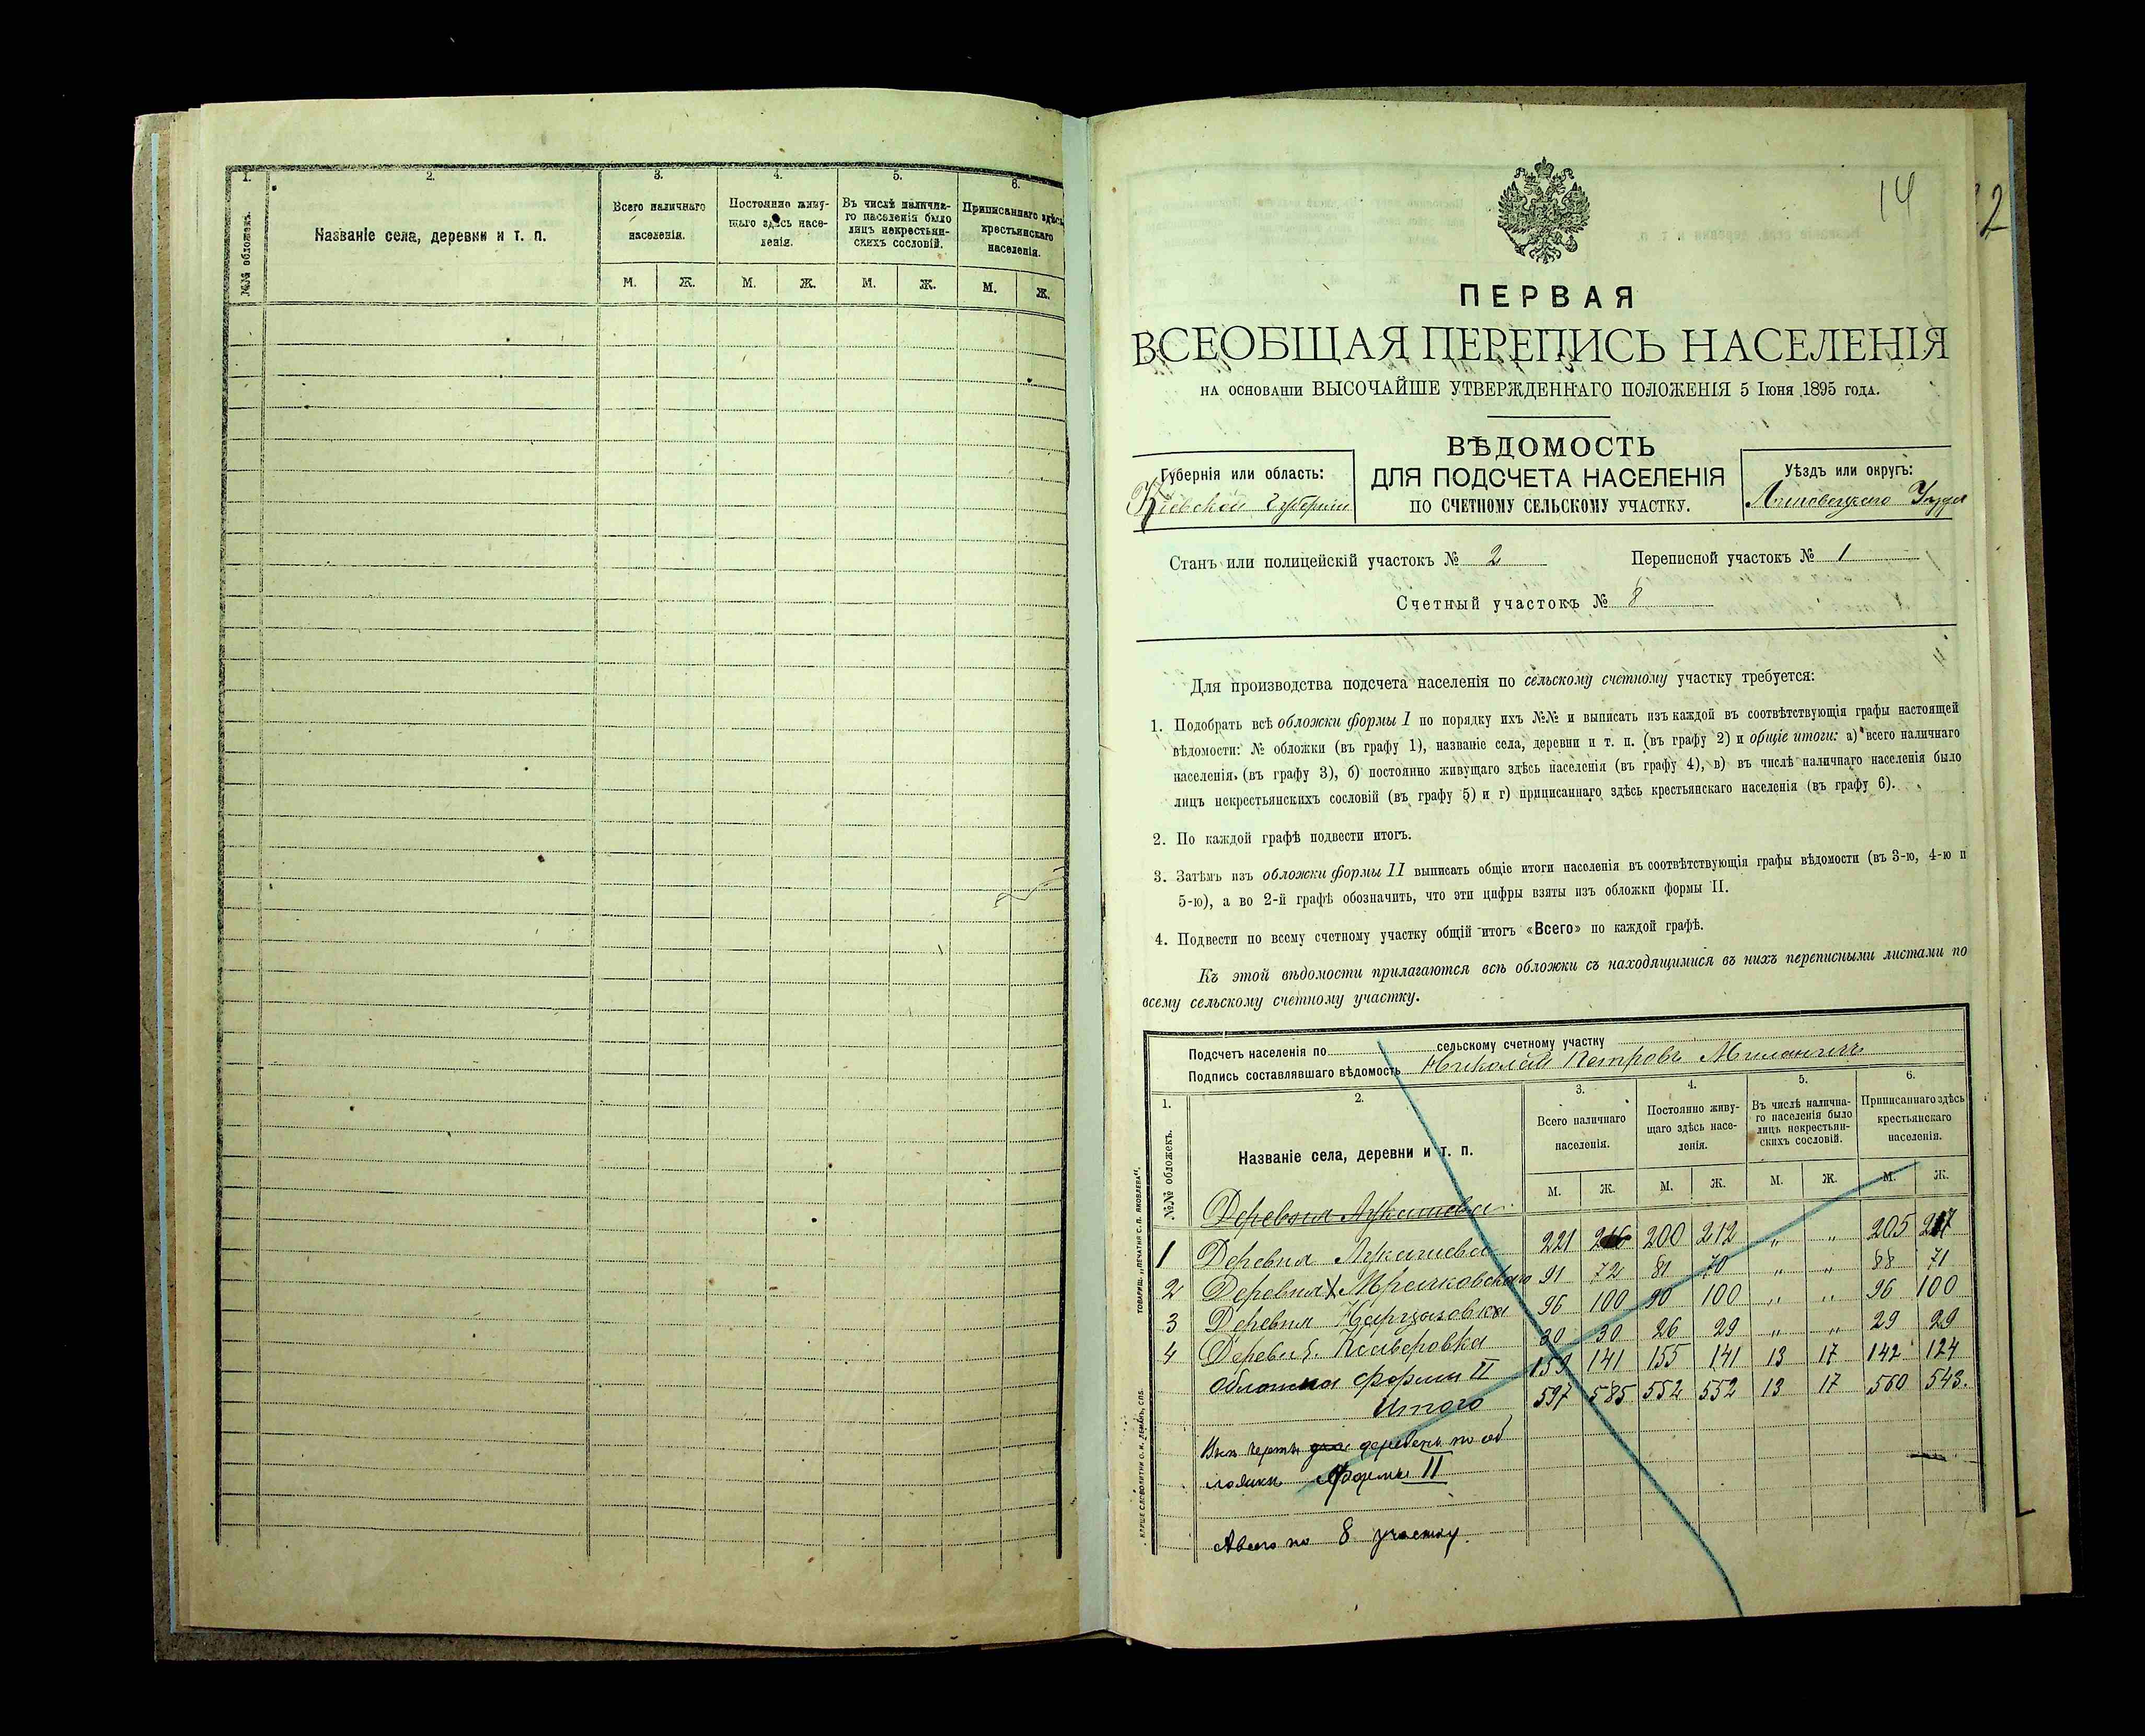 1.
2.
3.
4.
5.
6.
№№ обложекъ.
Названіе села, деревни и т. п.
Всего наличнаго населенія.
Постоянно живущаго здѣсь населенія.
Въ числѣ наличнаго населенія было лицъ некрестьянскихъ сословій.
Приписаннаго здѣсь крестьянскаго населенія.
М. Ж. М. Ж. М. Ж. М. Ж.
14
2
ПЕРВАЯ
ВСЕОБЩАЯ ПЕРЕПИСЬ НАСЕЛЕНІЯ
НА ОСНОВАНІИ ВЫСОЧАЙШЕ УТВЕРЖДЕННАГО ПОЛОЖЕНІЯ 5 Іюня 1895 ГОДА.
Губернія или область:
Кіевской губерніи
ВѢДОМОСТЬ
ДЛЯ ПОДСЧЕТА НАСЕЛЕНІЯ
ПО СЧЕТНОМУ СЕЛЬСКОМУ УЧАСТКУ.
Уѣздъ или округъ:
Липовецкаго Уѣзда
Станъ или полицейскій участокъ № 2 Переписной участокъ № 1
Счетный участокъ № 8
Для производства подсчета населенія по сельскому счетному участку требуется:
1. Подобрать всѣ обложки формы I по порядку ихъ №№ и выписать изъ каждой въ соотвѣтствующія графы настоящей
вѣдомости: № обложки (въ графу 1), названіе села, деревни и т. п. (въ графу 2) и общіе итоги: а) всего наличнаго
населенія (въ графу 3), б) постоянно живущаго здѣсь населенія (въ графу 4), в) въ числѣ наличнаго населенія было
лицъ некрестьянскихъ сословій (въ графу 5) и г) приписаннаго здѣсь крестьянскаго населенія (въ графу 6).
2. По каждой графѣ подвести итогъ.
3. Затѣмъ изъ обложки формы II выписать общіе итоги населенія въ соотвѣтствующія графы вѣдомости (въ 3-ю, 4-ю и
5-ю), а во 2-й графѣ обозначить, что эти цифры взяты изъ обложки формы II.
4. Подвести по всему счетному участку общій итогъ «Всего» по каждой графѣ.
Къ этой вѣдомости прилагаются всѣ обложки съ находящимися въ нихъ переписными листами по
всему сельскому счетному участку.
Подсчетъ населенія по сельскому счетному участку
Подпись составлявшаго вѣдомость Николай Петровъ
1.
2.
3.
4.
5.
6.
№№ обложекъ.
Названіе села, деревни и т. п.
Всего наличнаго населенія.
Постоянно живущаго здѣсь населенія.
Въ числѣ наличнаго населенія было лицъ некрестьянскихъ сословій.
Приписаннаго здѣсь крестьянскаго населенія.
М. Ж. М. Ж. М. Ж. М. Ж.
Деревня Лукашевка
1 Деревня Лукашевка 221 200 212 " " 205 217
2 Деревня 91 72 81 70 " " 88 71
3 Деревня Нарцызовка 96 100 90 100 " " 96 100
4 Деревня Ксаверовка 30 30 26 29 " " 29 29
Обложка формы II 159 141 155 141 13 17 142 124
Итого 597 585 552 552 13 17 560 543.
Внѣ черты деревень по об
ложки Формы II
Авсего по 8 участку.
ТОВАРИЩ. „ПЕЧАТНЯ С. П. ЯКОВЛЕВА".